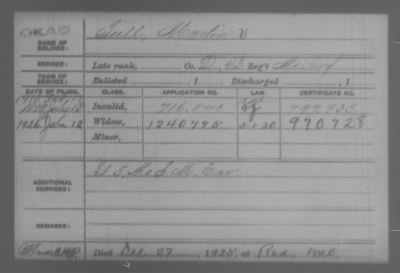 NAME OF SOLDIER: Tull, Madin V
SERVICE: Late rank, Co. D, 42 Reg't Mo. Inf
TERM OF SERVICE: Enlisted , 1 Discharged , 1
DATE OF FILING. CLASS. APPLICATION NO. LAW. CERTIFICATE NO.
Invalid, 716,040
1926 Jan 12 Widow, 1240775 970728
Minor,
ADDITIONAL SERVICES: Mo S M Cav
REMARKS:
Died Dec 27, 1925, at Rea, Mo.